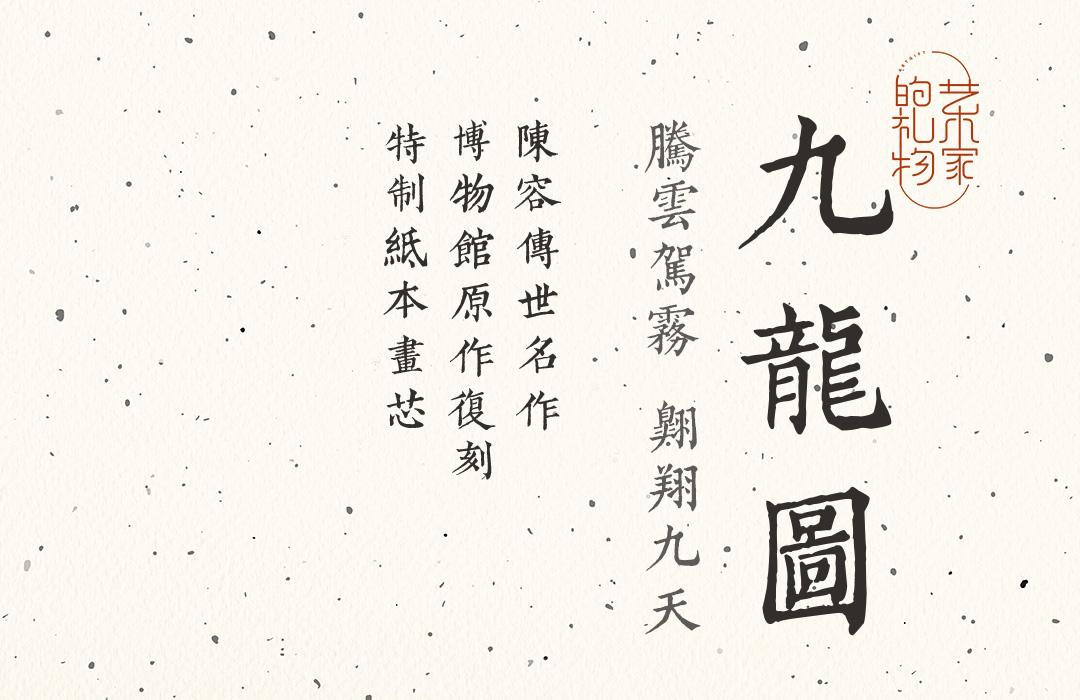 九龍圖
艺术家
的礼物
騰雲駕霧 翺翔九天
陳容傳世名作
博物館原作復刻
特制紙本畫芯